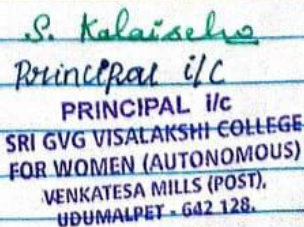 S. Kalaiselvi
Principal i/c
PRINCIPAL i/c
SRI GVG VISALAKSHI COLLEGE
FOR WOMEN (AUTONOMOUS)
VENKATESA MILLS (POST),
UDUMALPET - 642 128.